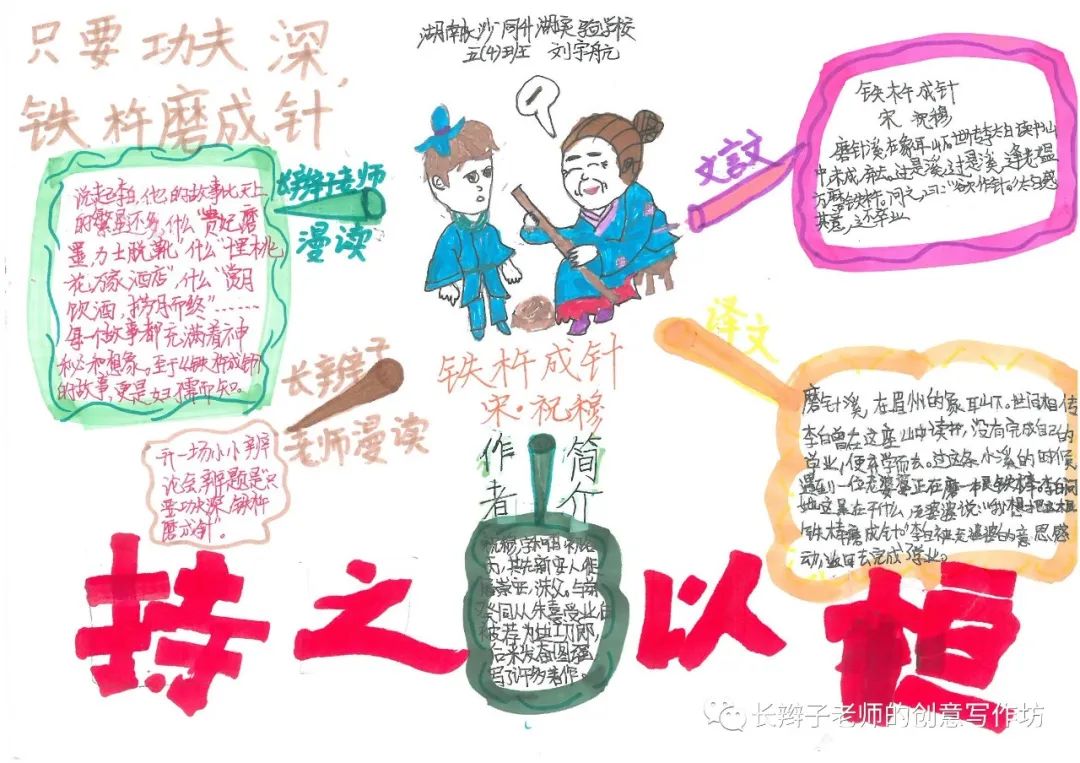 只要功夫深,
铁杵磨成针
湖南长沙同升湖实验学校
五(4)班 刘宇航
长辫子老师
漫读
说起李白,他的故事比天上
的繁星还多,什么“贵妃磨
墨,力士脱靴”什么“里桃
花万家酒店”,什么“赏月
饮酒,捞月而终”……
每个故事都充满着神
秘和想象。至于《铁杵成针》
的故事,更是妇孺而知。
长辫子
老师漫读
开一场小小辨
论会辨题是“只
要功夫深,铁杵
磨成针”。
铁杵成针
宋·祝穆
作者
简介
祝穆,字和
与
癸同从朱熹受业后
被荐为迪功郎,
后来发奋图强
写了许多著作。
文言文
铁杵成针
宋 祝穆
磨针溪,在象耳山下。世传李太白读书山
中,未成,弃去。过是溪,过是溪,逢老媪
方磨铁杵。问之,曰:“欲作针。”太白感
其意,还卒业
译文
磨针溪,在眉州的象耳山下。世间相传
李白曾在这座山中读书,没有完成自己的
学业,便弃学而去。过这条小溪的时候
遇到一位老婆婆正在磨一根铁棒。李白问
她这是在干什么,老婆婆说:“我想把这根
铁棒磨成针”李白被老婆婆的意思感
动,当回去完成了学业。
持之以恒
长辫子老师的创意写作坊